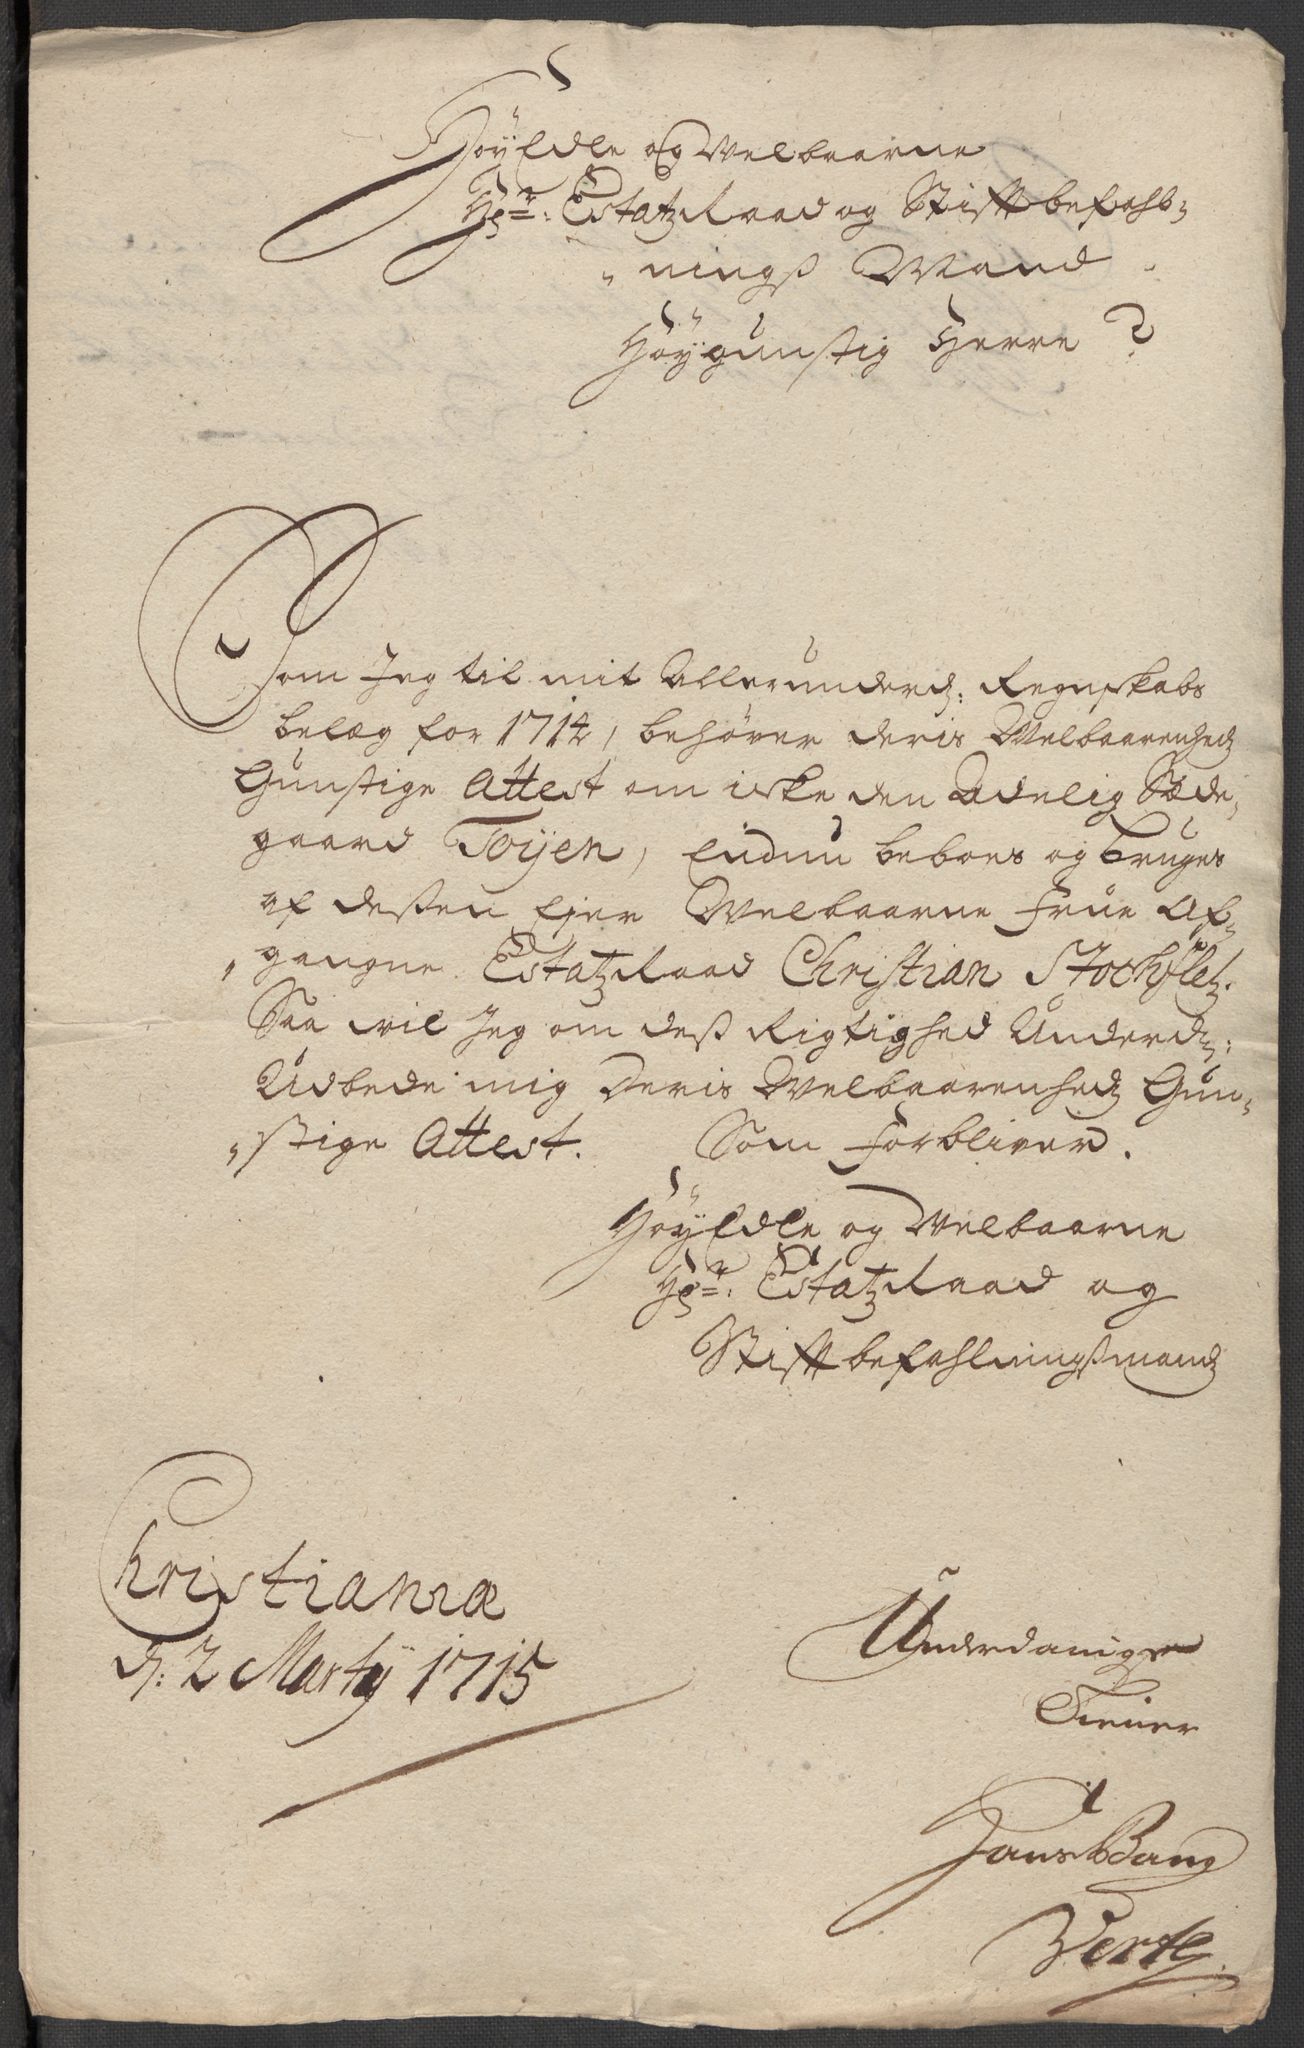 HöyEdle og Welbaarne
Hr: EstatzRaad og Stifftbefahl-
ningsß Mand
Höÿgunstig Herre?
Som Jeg til mit Allerunderd: Regnskabs
belæg for 1714, behøver deris Welbaarenhedz
Gunstige Attest om icke den Adelig Sæde-
gaard Toÿen, Endnu beboes og bruges
af desßen Ejer Welbaarne Frue Af-
gangne EstatzRaad Christian Stockfletz.
Saa vil Jeg om desß Rigtighed Underd:
Udbede mig Deris Welbaarenhedz Gun-
stige Attest. Som Forbliver.
HöyEdle og Welbaarne
Hr: EstatzRaad og
Stifftbefahlningsßmandz
Christiania
d: 2 Martÿ 1715
Underdanige
Tiener
Hans Bang